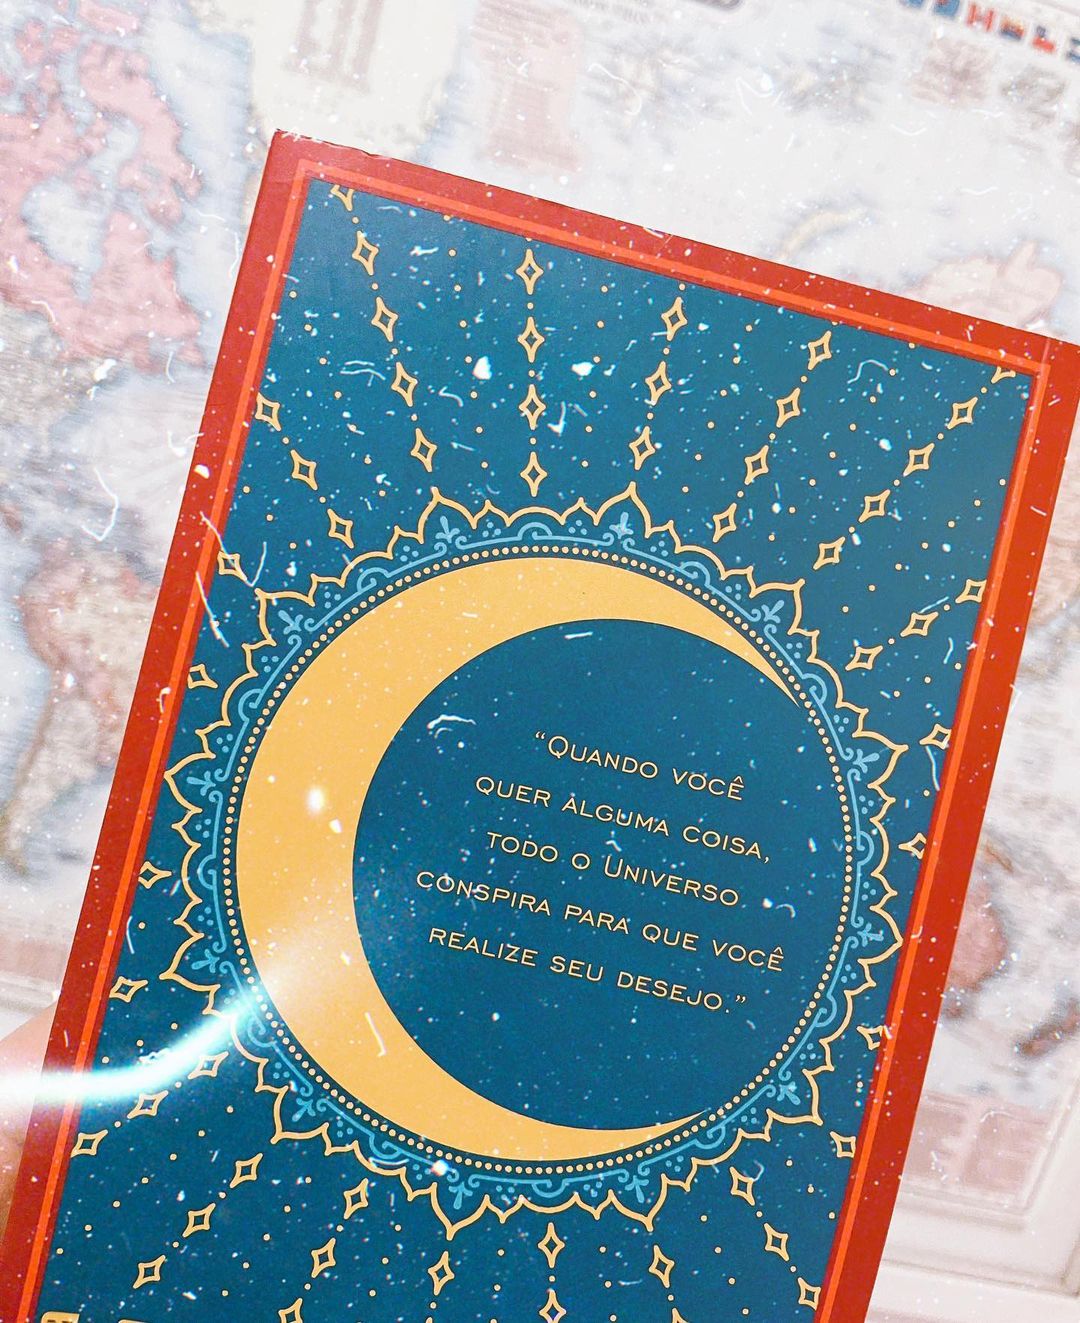 “Quando você
quer alguma coisa,
todo o Universo
conspira para que você
realize seu desejo.”